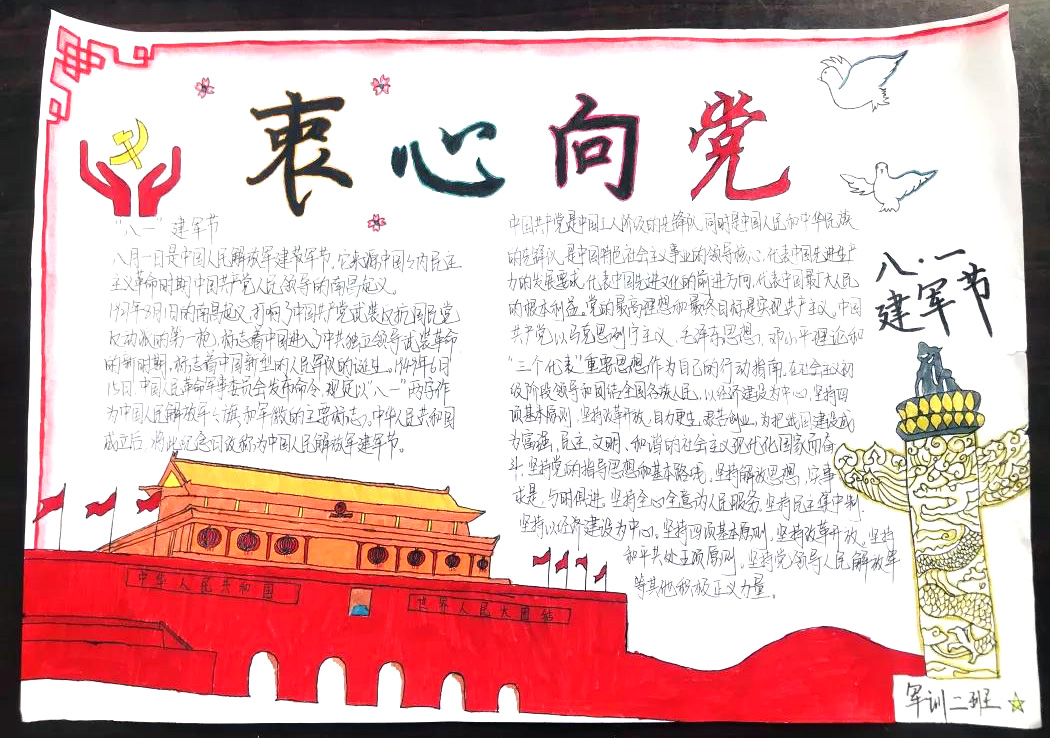 衷心向党
"八一"建军节
八月一日是中国人民解放军建军节,它来源中国国内民主
主义革命时期中国共产党人民领导的南昌起义。
1927年8月1日的南昌起义,打响了中国共产党武装反抗国民党
反动派的第一枪,标志着中国进入了中共独立领导武装革命
的新时期,标志着中国新型的人民军队的诞生。1949年6月
15日,中国人民革命军事委员会发布命令,规定以"八一"两字作
为中国人民解放军军旗和军徽的主要标志。中华人民共和国
成立后,将此纪念日改称为中国人民解放军建军节。
中国共产党是中国工人阶级的先锋队,同时是中国人民和中华民族
的先锋队,是中国特色社会主义事业的领导核心,代表中国先进生产
力的发展要求,代表中国先进文化的前进方向,代表中国最广大人民
的根本利益。党的最高理想和最终目标是实现共产主义。中国
共产党以马克思列宁主义、毛泽东思想、邓小平理论和
"三个代表"重要思想作为自己的行动指南,在社会主义初
级阶段领导和团结全国各族人民,以经济建设为中心,坚持四
项基本原则,坚持改革开放,自力更生,艰苦创业,为把我国建设成
为富强、民主、文明、和谐的社会主义现代化国家而奋
斗。坚持党的指导思想和基本路线,坚持解放思想,实事
求是,与时俱进,坚持全心全意为人民服务,坚持民主集中制,
坚持以经济建设为中心,坚持四项基本原则,坚持改革开放。坚持
和平共处五项原则,坚持党领导人民解放军
等其他积极正义力量。
八·一
建军节
中华人民共和国
世界人民大团结
军训二班